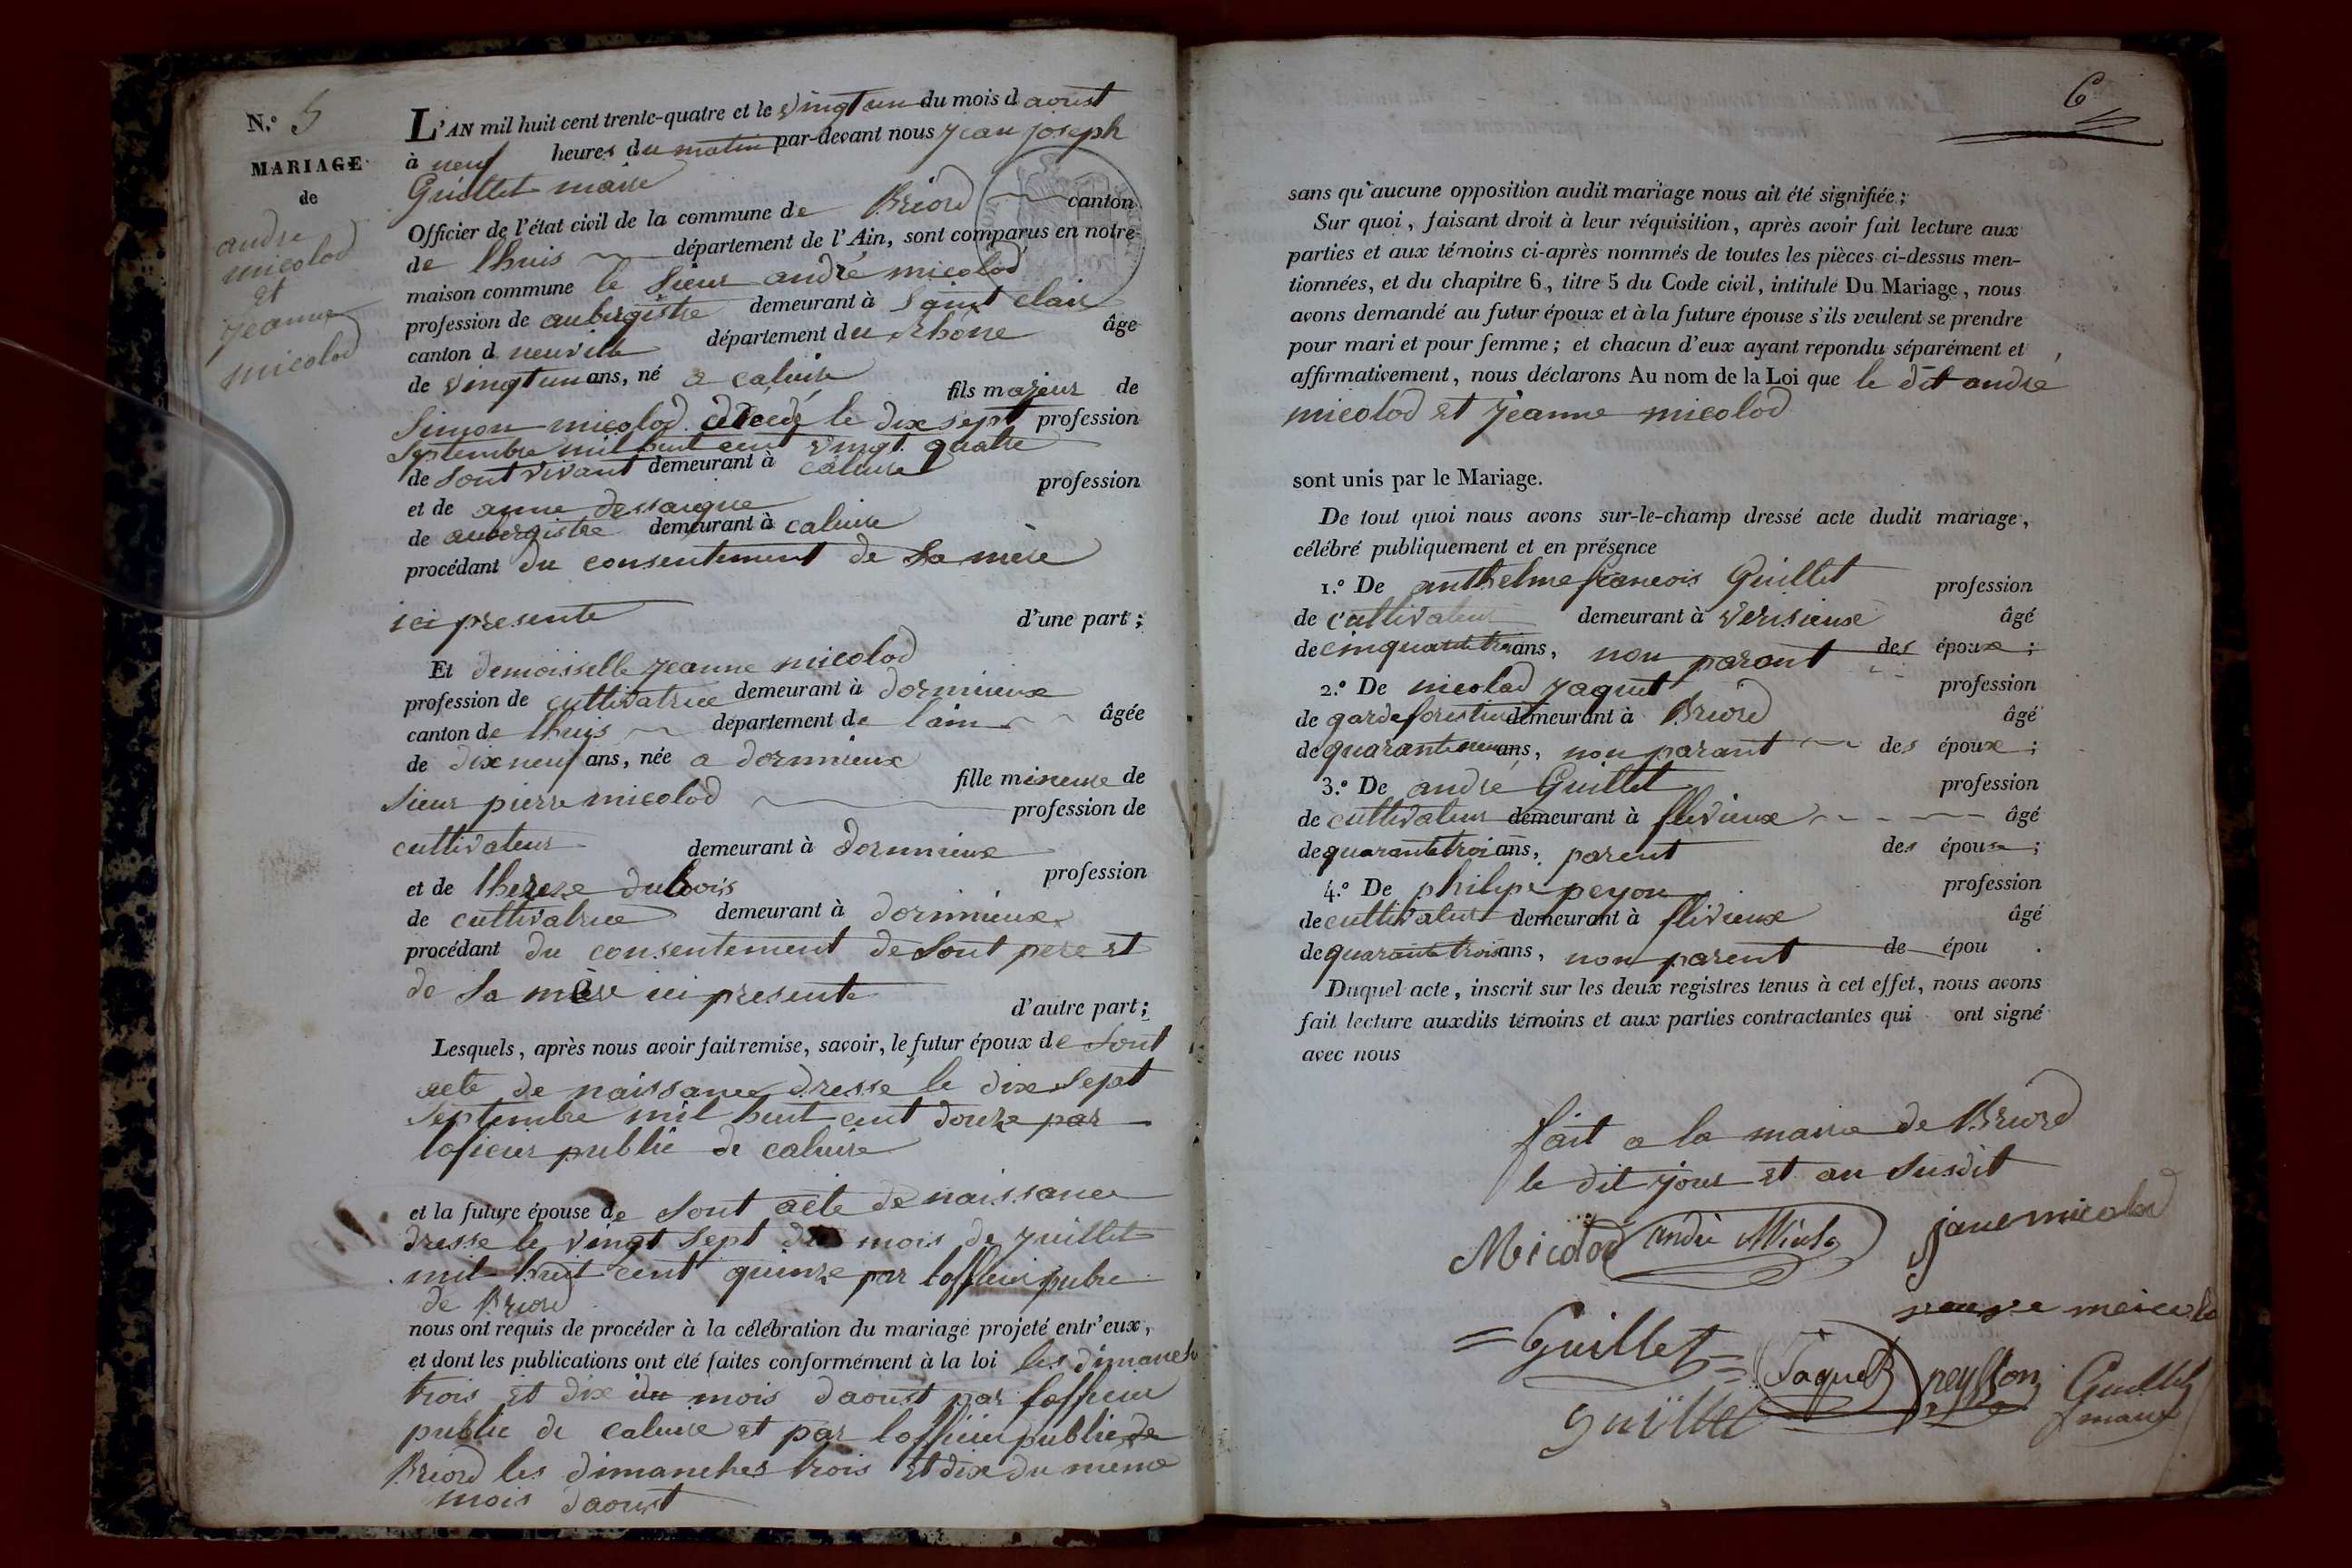 N.o 5
MARIAGE
de
andre
micolod
et
jeanne
micolod
L'AN mil huit cent trente-quatre et le vingt un du mois d aoust
à neuf heures du matin par-devant nous jean joseph
Guillet maire
Officier de l'état civil de la commune de Briord canton
de lhuis département de l'Ain, sont comparus en notre
maison commune le sieur andré micolod
profession de aubergiste demeurant à saint clair
canton d neuville département du rhône âgé
de vingt un ans, né a caluire
fils majeur de
Simon micolod décédé le dix sept profession
septembre mil huit cent vingt quatre
de sont vivant demeurant à caluire
et de anne dessaigne profession
de aubergistre demeurant à caluire
procédant du consentement de sa mère
ici presente d'une part;
Et demoisselle jeanne micolod
profession de cultivatrice demeurant à dornieux
canton de lhuis département de lain âgée
de dix neuf ans, née a dornieux
fille mineure de
sieur pierre micolod profession de
cultivateur demeurant à dornieux
et de therese dubois profession
de cultivatrice demeurant à dornieux
procédant du consentement de sont pere et
de sa mère ici presente
d'autre part;
Lesquels, après nous avoir fait remise, savoir, le futur époux de sont
acte de naissance dresse le dix sept
septembre mil huit cent douze par
loficier public de caluire
et la future épouse de sont acte de naissance
dresse le vingt sept du mois de juillet
mil huit cent quinze par lofficier
de Briord
nous ont requis de procéder à la célébration du mariage projeté entr'eux,
et dont les publications ont été faites conformément à la loi les dimanche
trois et dix du mois daoust par lofficier
public de caluire et par lofficier public de
Briord les dimanches trois et dix du meme
mois daoust
6
sans qu'aucune opposition audit mariage nous ait été signifiée;
Sur quoi, faisant droit à leur réquisition, après avoir fait lecture aux
parties et aux témoins ci-après nommés de toutes les pièces ci-dessus men-
tionnées, et du chapitre 6, titre 5 du Code civil, intitulé Du Mariage, nous
avons demandé au futur époux et à la future épouse s'ils veulent se prendre
pour mari et pour femme; et chacun d'eux ayant répondu séparément et
affirmativement, nous déclarons Au nom de la Loi que le dit andre
micolod et jeanne micolod
sont unis par le Mariage.
De tout quoi nous avons sur-le-champ dressé acte dudit mariage,
célébré publiquement et en présence
1.o De anthelme francois Guillet profession
de cultivateur demeurant à verisieux âgé
de cinquante trois ans, non parant des époux;
2.o De micolad jaquet profession
de garde forestier demeurant à Briord âgé
de quarante neuf ans, non parant des époux;
3.o De andré Guillet profession
de cultivateur demeurant à flevieux âgé
de quarante trois ans, parent des épouse;
4.o De philipe peyon profession
de cultivateur demeurant à flevieux âgé
de quarante trois ans, non parent de épou .
Duquel acte, inscrit sur les deux registres tenus à cet effet, nous avons
fait lecture auxdits témoins et aux parties contractantes qui ont signé
avec nous
fait a la mairie de Briord
le dit jour et an susdit
Micolod andré janemicolod
Guillet
Jaquet peysson Guillet
Guillet maire